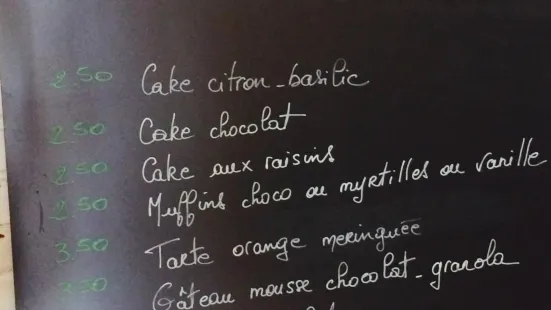 2.50 Cake citron-basilic
2.50 Cake chocolat
2.50 Cake aux raisins
2.50 Muffins choco ou myrtilles ou vanille
3.50 Tarte orange meringuée
Gâteau mousse chocolat-granola